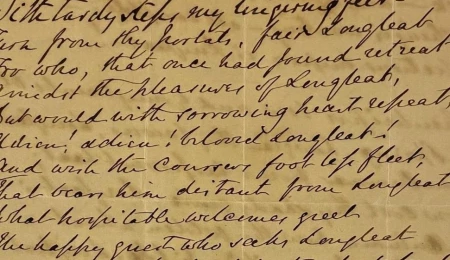 With tardy steps my lingering feet
Turn from thy portals, fair Longleat
For who, that once had found retreat
Amidst the pleasures of Longleat,
But would with sorrowing heart repeat,
Adieu! adieu! beloved Longleat!
And wish the coursers foot less fleet,
That bears him distant from Longleat
What hospitable welcomes greet
The happy guest who seeks Longleat